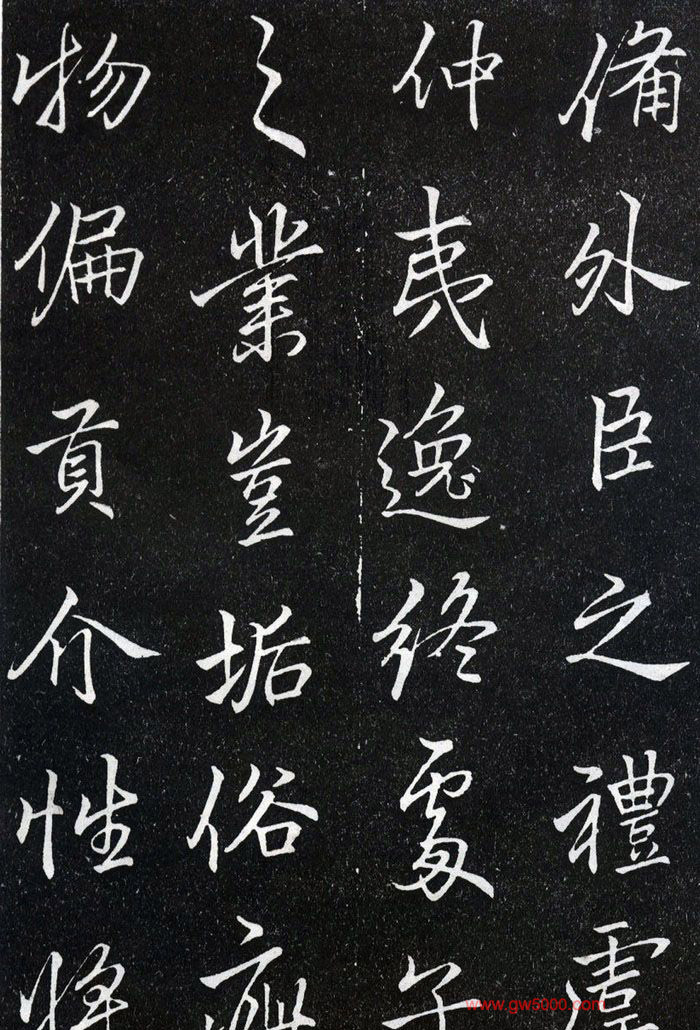 備外臣之禮虞
仲夷逸終處子
之業豈垢俗疵
物偏貢介性將
www.gw5000.com